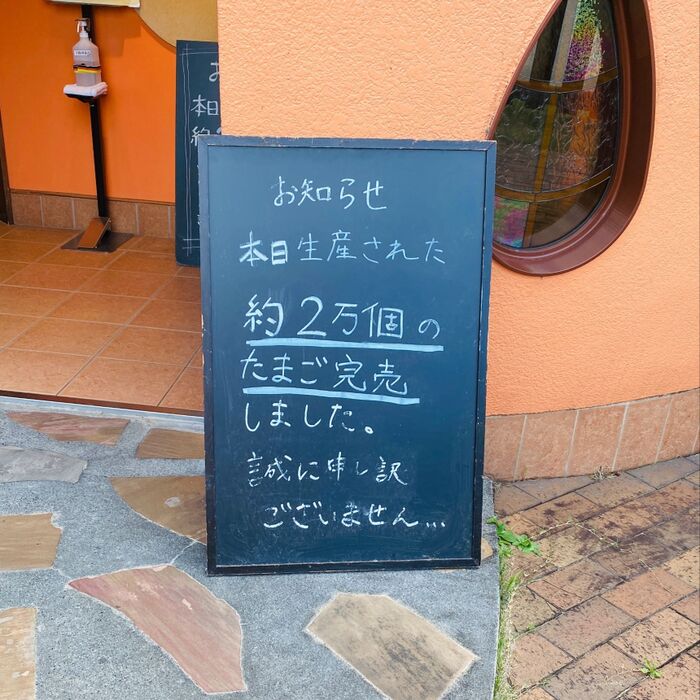 お知らせ
本日生産された
約2万個の
たまご完売
しました。
誠に申し訳
ございません...
お
本日
約